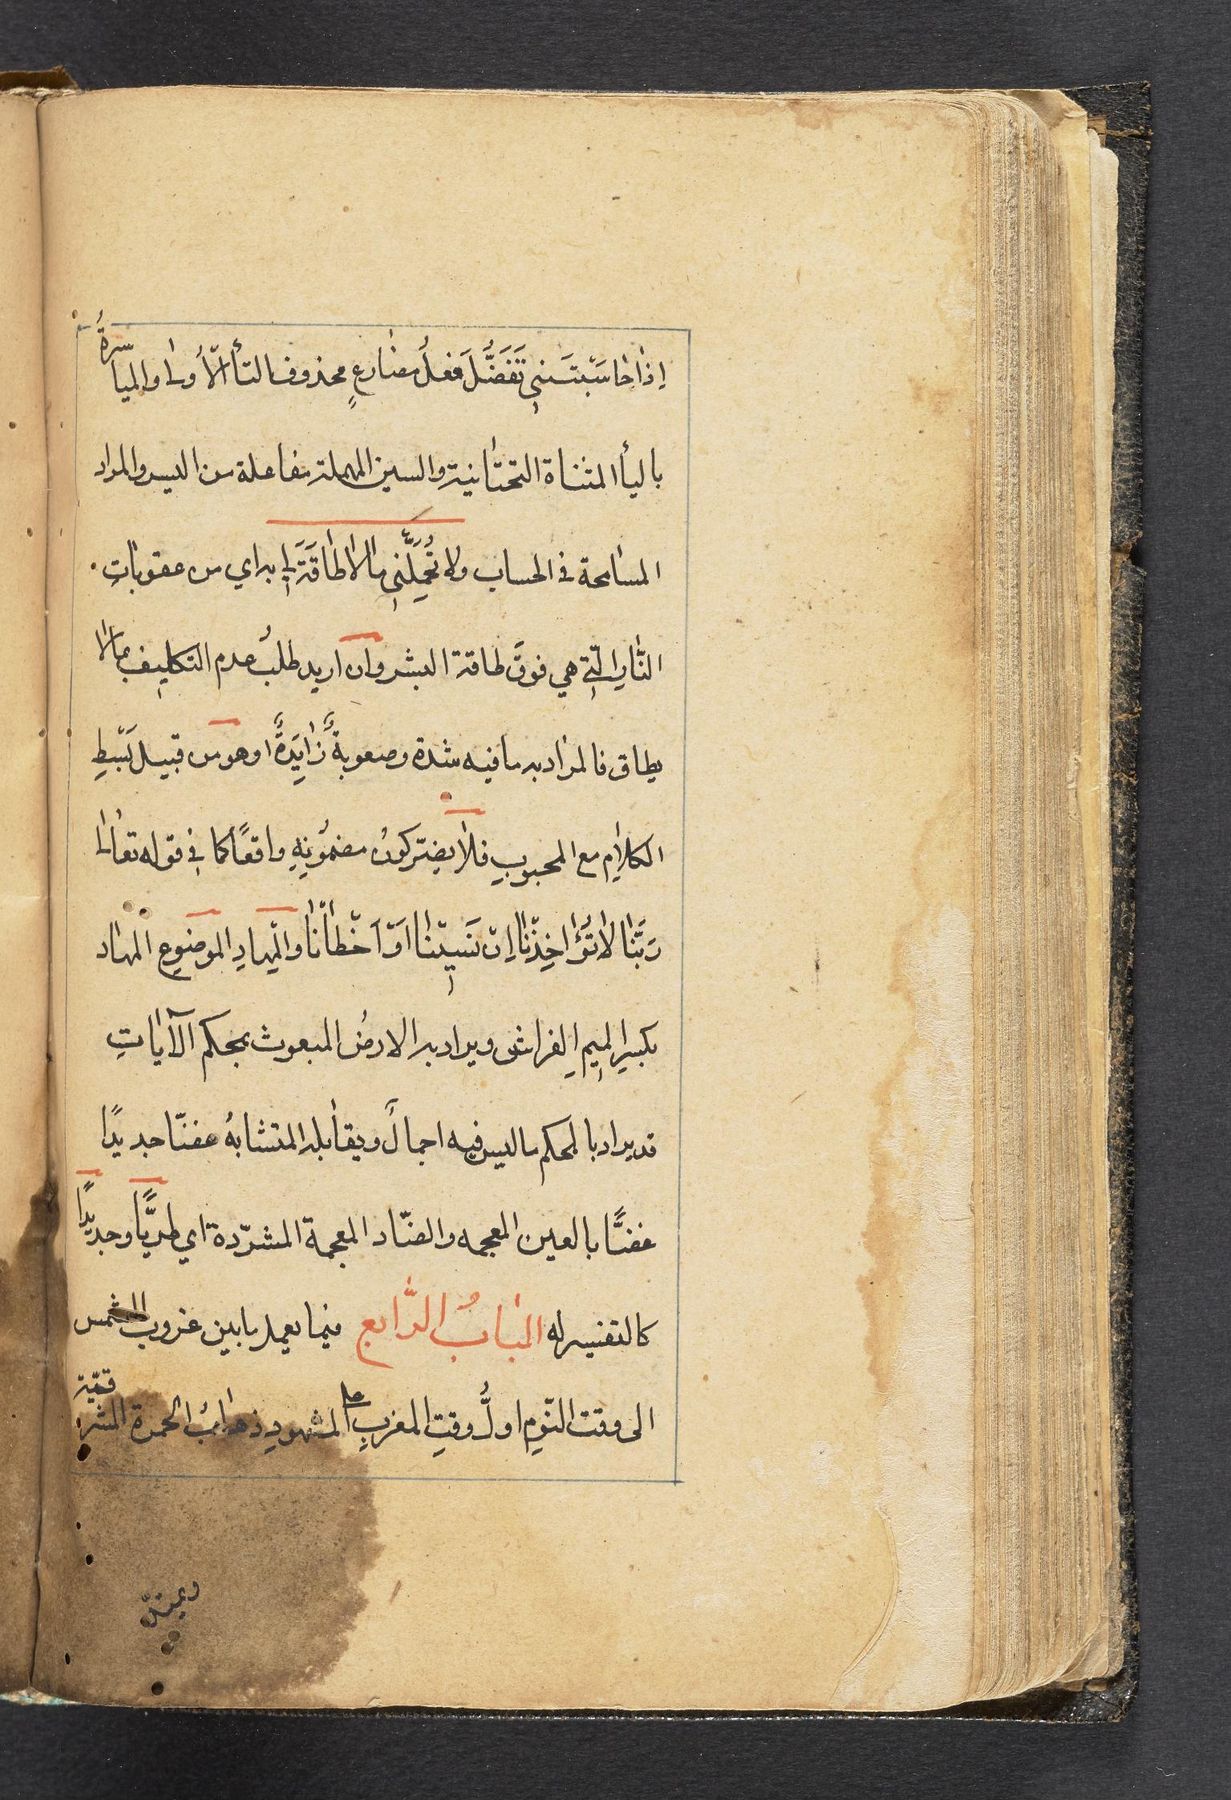 اِذاٰ حٰاسَبْتَنىٖ تَفَضَّلَ فعلُ مضٰارعٍ محذوف التأ الاُولىٰ والمياسرةُ
باليأ المثناة التحتانية والسين المهملة مفاعلة من اليسر والمراد
المسٰامحة فى الحساب ولا تُحَمِّلَنّى مٰا لاٰ طٰاقَةَ لىٖ به اي من عقوبٰاتِ
النّٰارِ الّتىٖ هي فوقَ طاقة البشر وان اريد طلبُ عدم التكليف بمٰا لاٰ
يطاق فالمرٰاد به ما فيه شدة وصعوبةٌ زٰايِدَةٌ او هو من قبيل بَسْطِ
الكلاٰمِ مع المحبوبِ فلاٰ يضرّ كونُ مضمُونِهِ واقعًا كما فىٖ قوله تعٰالىٰ
رَبَّنٰا لاٰ تُؤٰاخِذْنٰا اِنْ نَسيٖنٰا اَوْ اَخْطَأْنٰا والمِهادِ الموضوعِ المهٰاد
بكسرِ الميٖمِ الفراش ويراد به الارضُ المبعوث بمحكم الآيٰاتِ
قد يراد بالمحكم ما ليس فيه اجمالٌ ويقٰابله المتشابهُ غضّا جديدًا
غضًّا بالغين المعجمه والضّاد المعجمة المشدّدة اي طريًّا وجديدًا
كالتفسير له البٰابُ الرّٰابع فيمٰا يعمل ما بين غروب الشمس
الى وقت النّومِ اولُ وقتِ المغربِ علىٰ المشهودِ ذهٰابُ الحمرة المشرقيّة
ويمتدّ